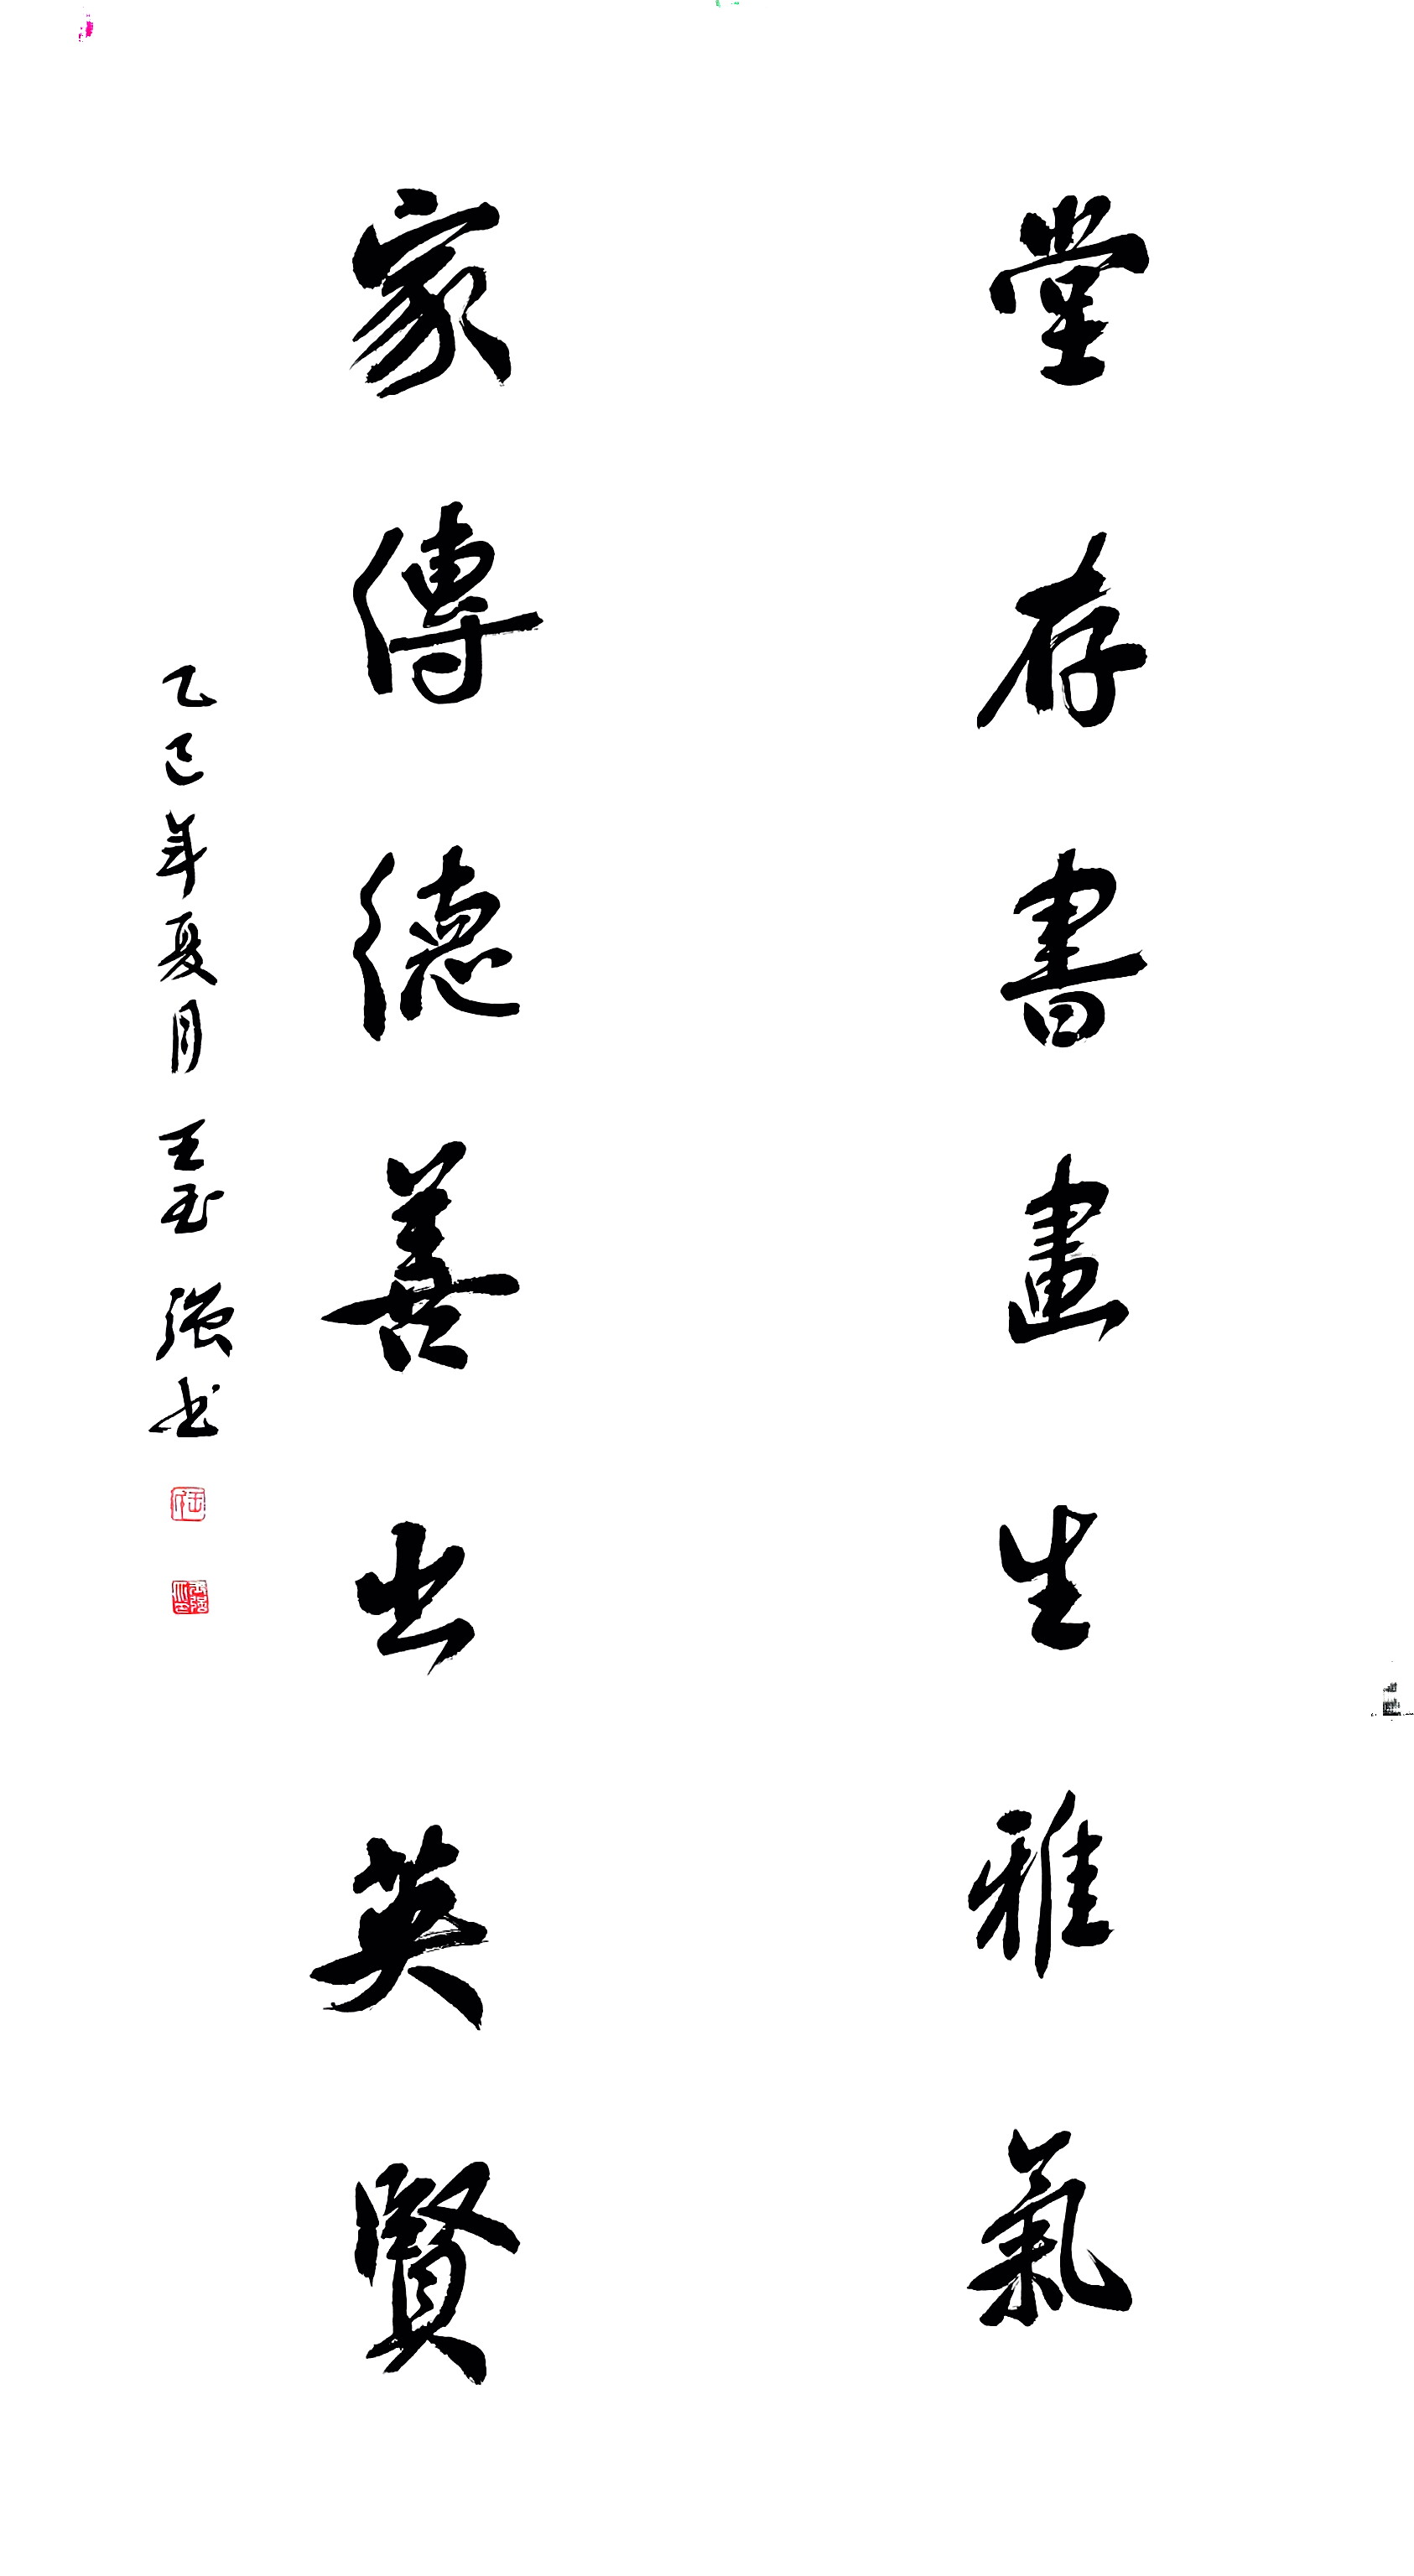 堂存書畫生雅氣
家傳德善出英賢
乙巳年夏月王玉强书